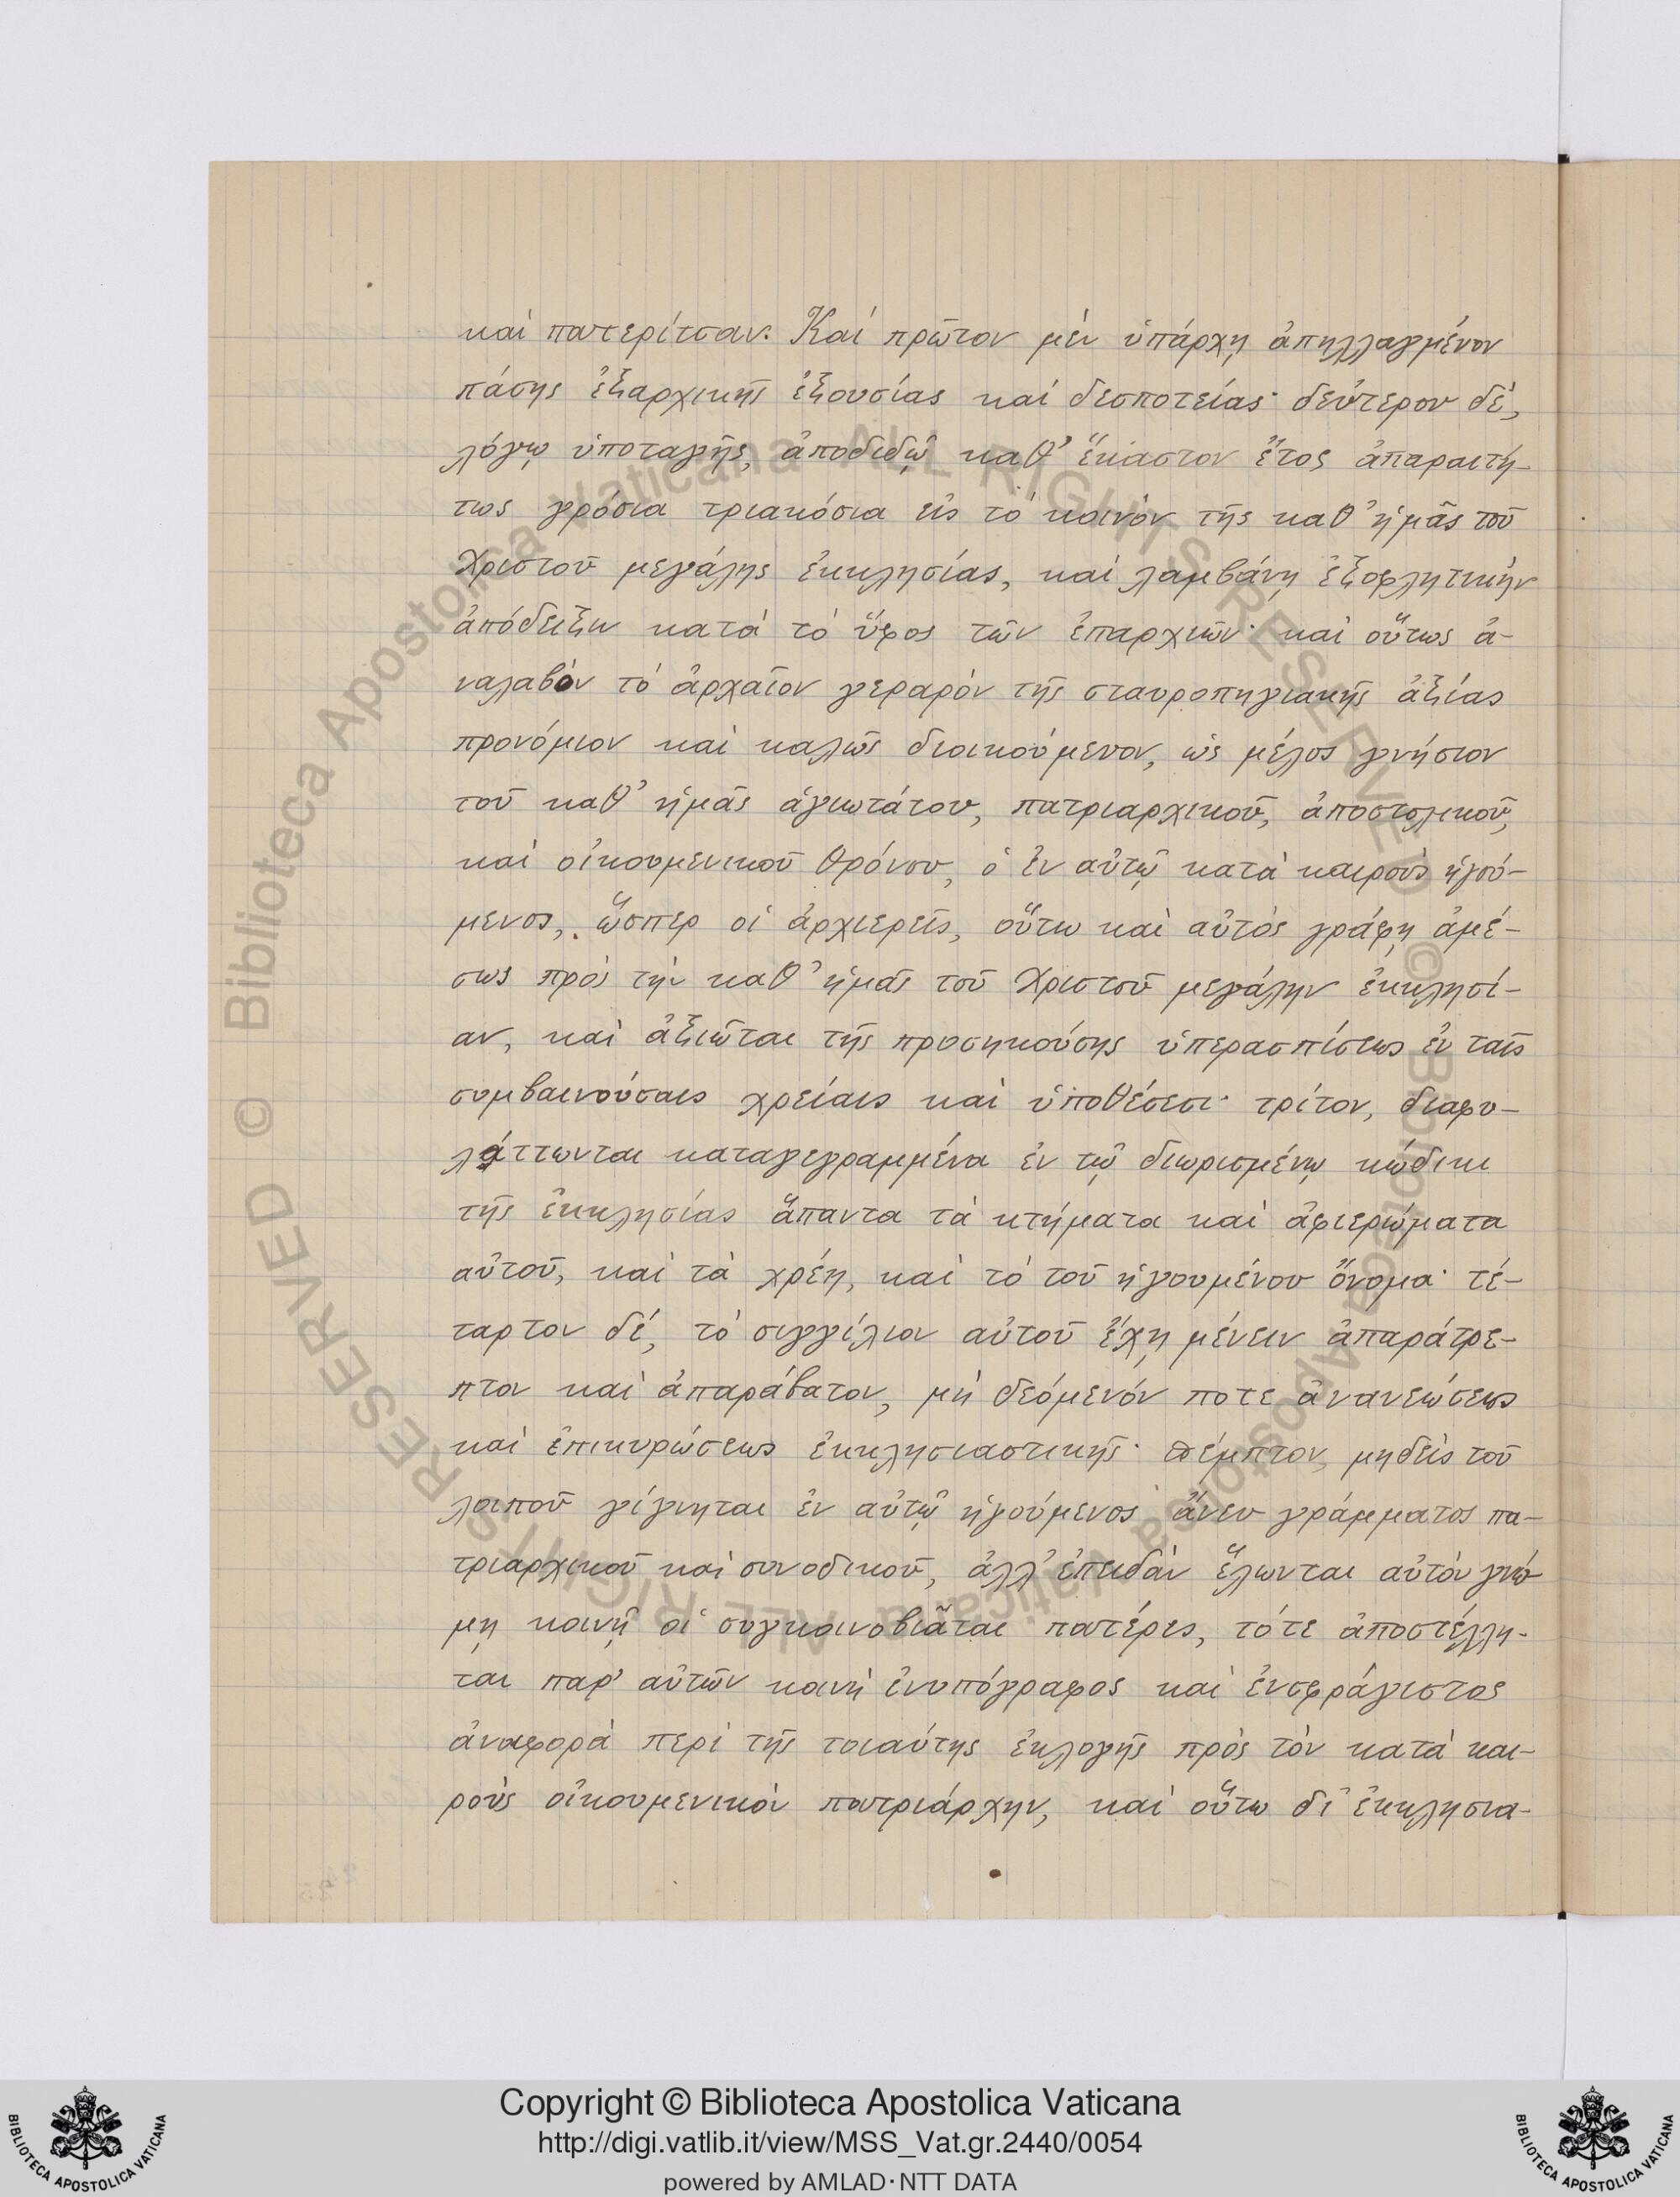 καὶ πατερίτσαν. Καὶ πρῶτον μὲν ὑπάρχῃ ἀπηλλαγμένον
πάσης ἐξαρχικῆς ἐξουσίας καὶ δεσποτείας· δεύτερον δὲ,
λόγῳ ὑποταγῆς, ἀποδιδῷ καθ' ἕκαστον ἔτος ἀπαραιτή-
τως γρόσια τριακόσια εἰς τὸ κοινὸν τῆς καθ' ἡμᾶς τοῦ
Χριστοῦ μεγάλης ἐκκλησίας, καὶ λαμβάνῃ ἐξοφλητικὴν
ἀπόδειξιν κατὰ τὸ ὕφος τῶν ἐπαρχιῶν· καὶ οὕτως ἀ-
ναλαβὸν τὸ ἀρχαῖον γεραρὸν τῆς σταυροπηγιακῆς ἀξίας
προνόμιον καὶ καλῶς διοικούμενον, ὡς μέλος γνήσιον
τοῦ καθ' ἡμᾶς ἁγιωτάτου, πατριαρχικοῦ, ἀποστολικοῦ,
καὶ οἰκουμενικοῦ θρόνου, ὁ ἐν αὐτῷ κατὰ καιροὺς ἡγού-
μενος, ὥσπερ οἱ ἀρχιερεῖς, οὕτω καὶ αὐτὸς γράφῃ ἀμέ-
σως πρὸς τὴν καθ' ἡμᾶς τοῦ Χριστοῦ μεγάλην ἐκκλησί-
αν, καὶ ἀξιῶται τῆς προσηκούσης ὑπερασπίσεως ἐν ταῖς
συμβαινούσαις χρείαις καὶ ὑποθέσεσι· τρίτον, διαφυ-
λάττωνται καταγεγραμμένα ἐν τῷ διωρισμένῳ κώδικι
τῆς ἐκκλησίας ἅπαντα τὰ κτήματα καὶ ἀφιερώματα
αὐτοῦ, καὶ τὰ χρέη, καὶ τὸ τοῦ ἡγουμένου ὄνομα· τέ-
ταρτον δὲ, τὸ σιγγίλιον αὐτοῦ ἔχῃ μένειν ἀπαράτρε-
πτον καὶ ἀπαράβατον, μὴ δεόμενόν ποτε ἀνανεώσεως
καὶ ἐπικυρώσεως ἐκκλησιαστικῆς· πέμπτον, μηδεὶς τοῦ
λοιποῦ γίγνηται ἐν αὐτῷ ἡγούμενος ἄνευ γράμματος πα-
τριαρχικοῦ καὶ συνοδικοῦ, ἀλλ' ἐπειδὰν ἕλωνται αὐτὸν γνώ-
μῃ κοινῇ οἱ συγκοινοβιᾶται πατέρες, τότε ἀποστέλλη-
ται παρ' αὐτῶν κοινὴ ἐνυπόγραφος καὶ ἐνσφράγιστος
ἀναφορὰ περὶ τῆς τοιαύτης ἐκλογῆς πρὸς τὸν κατὰ και-
ροὺς οἰκουμενικὸν πατριάρχην, καὶ οὕτω δι' ἐκκλησια-
© Biblioteca Apostolica Vaticana ALL RIGHTS RESERVED © Biblioteca Apostolica Vaticana ALL RIGHTS RESERVED
Copyright © Biblioteca Apostolica Vaticana
http://digi.vatlib.it/view/MSS_Vat.gr.2440/0054
powered by AMLAD·NTT DATA
BIBLIOTECA APOSTOLICA VATICANA
BIBLIOTECA APOSTOLICA VATICANA